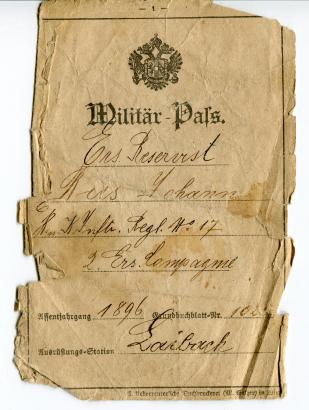 — 1 —
Militär-Paſs.
Ers. Reservist
Johann
K. K. Inftr. Regt. No 17
2. Ers. Compagnie
Assentjahrgang 1896 Grundbuchblatt-Nr.
Ausrüstungs-Station Laibach